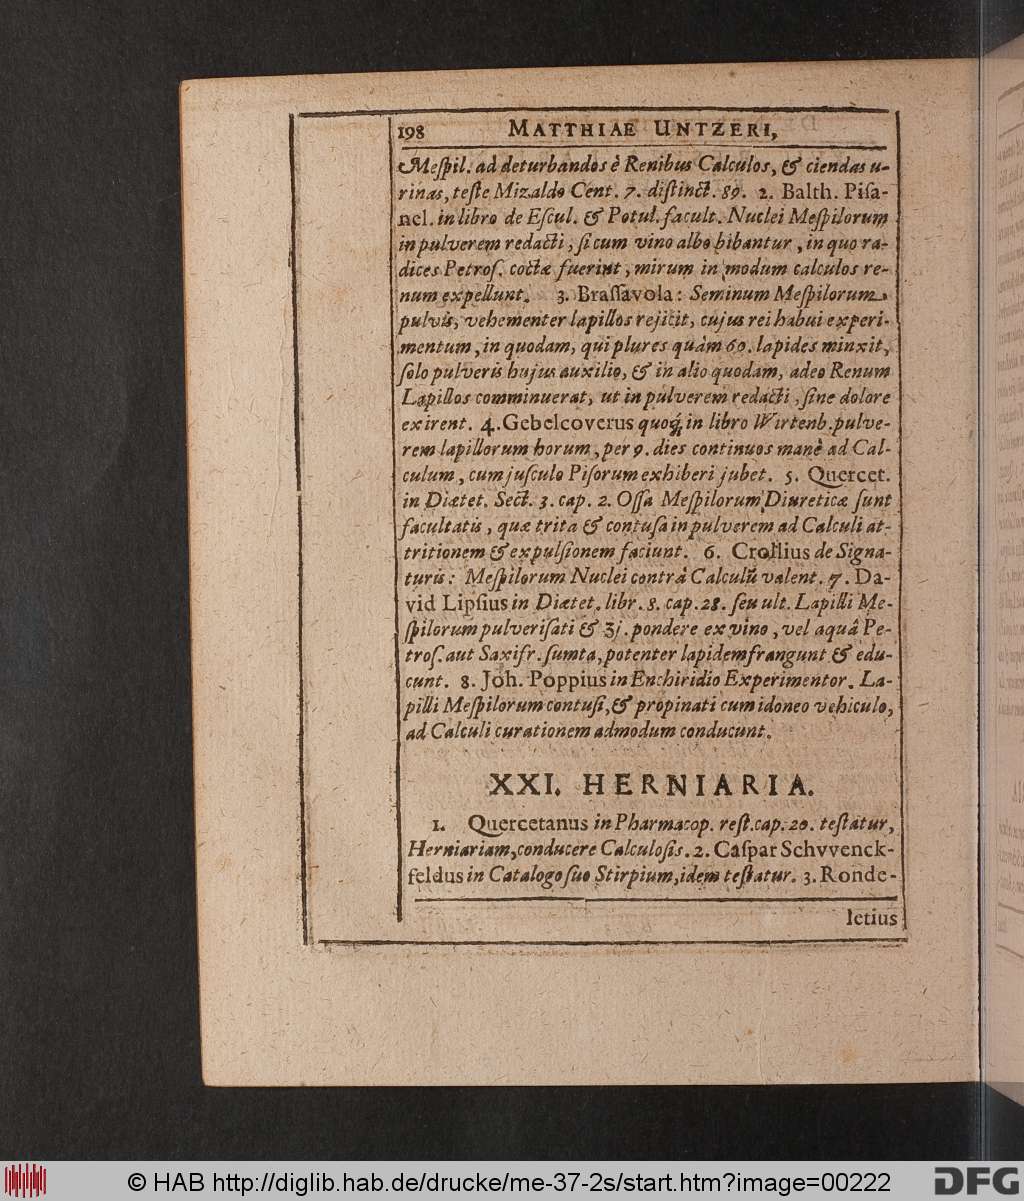 198 MATTHIAE UNTZERI,
Meſpil. ad deturbandos è Renibus Calculos, & ciendas u-
rinas, teſte Mizaldo Cent. 7. diſtinct. 89. 2. Balth. Piſa-
nel. in libro de Eſcul. & Potul. facult. Nuclei Meſpilorum
in pulverem redacti, ſi cum vino albo bibantur, in quo ra-
dices Petroſ. coctæ fuerint, mirum in modum calculos re-
num expellunt. 3. Braſſavola: Seminum Meſpilorum
pulvis, vehementer lapillos rejicit, cujus rei habui experi-
mentum, in quodam, qui plures quàm 60. lapides minxit,
ſolo pulveris hujus auxilio, & in alio quodam, adeo Renum
Lapillos comminuerat, ut in pulverem redacti, ſine dolore
exirent. 4. Gebelcoverus quoq; in libro Wirtenb. pulve-
rem lapillorum horum, per 9. dies continuos manè ad Cal-
culum, cum juſculo Piſorum exhiberi jubet. 5. Quercet.
in Diætet. Sect. 3. cap. 2. Oſſa Meſpilorum Diureticæ ſunt
facultatis, quæ trita & contuſa in pulverem ad Calculi at-
tritionem & expulſionem faciunt. 6. Crollius de Signa-
turis: Meſpilorum Nuclei contrà Calculū valent. 7. Da-
vid Lipſius in Diætet. libr. 8. cap. 28. ſeu ult. Lapilli Me-
ſpilorum pulveriſati & ʒj. pondere ex vino, vel aquâ Pe-
troſ. aut Saxifr. ſumta, potenter lapidem frangunt & edu-
cunt. 8. Joh. Poppius in Enchiridio Experimentor. La-
pilli Meſpilorum contuſi, & propinati cum idoneo vehiculo,
ad Calculi curationem admodum conducunt.
XXI. HERNIARIA.
1. Quercetanus in Pharmacop. reſt. cap. 20. teſtatur,
Herniariam, conducere Calculoſis. 2. Caſpar Schvvenck-
feldus in Catalogo ſuo Stirpium, idem teſtatur. 3. Ronde-
letius
© HAB http://diglib.hab.de/drucke/me-37-2s/start.htm?image=00222
DFG